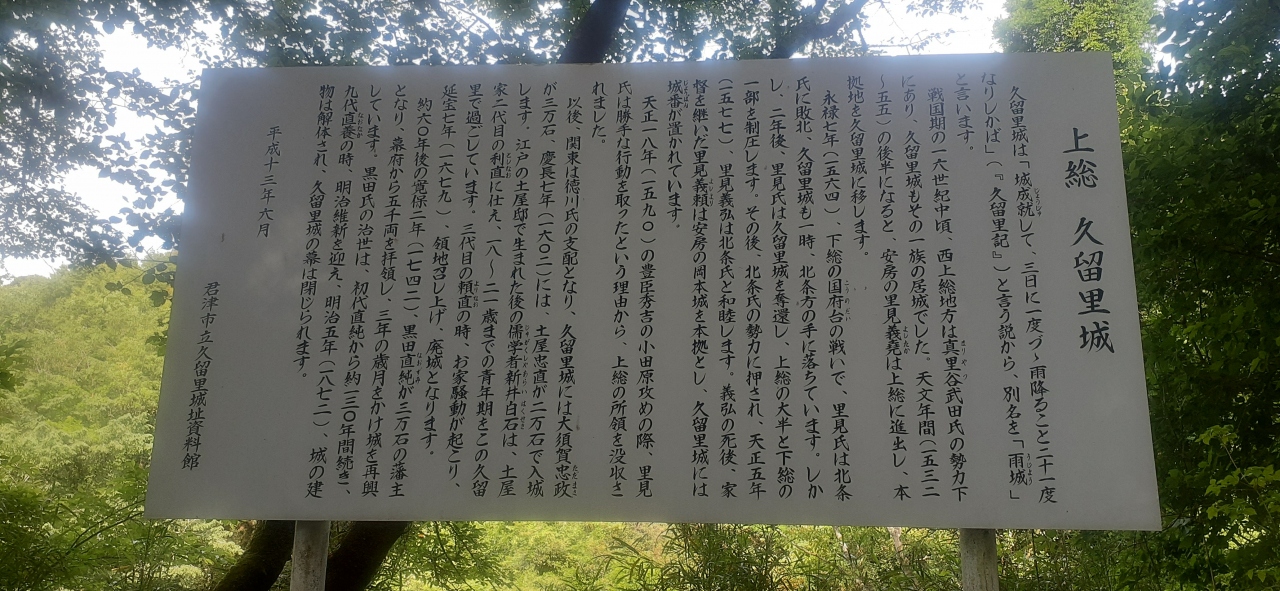 上総 久留里城
久留里城は「城成就して、三日に一度づゝ雨降ること二十一度
なりしかば」(『久留里記』)と言う説から、別名を「雨城」
と言います。
戦国期の一六世紀中頃、西上総地方は真里谷武田氏の勢力下
にあり、久留里城もその一族の居城でした。天文年間(一五三二
～五五)の後半になると、安房の里見義堯は上総に進出し、本
拠地を久留里城に移します。
永禄七年(一五六四)、下総の国府台の戦いで、里見氏は北条
氏に敗北、久留里城も一時、北条方の手に落ちています。しか
し、二年後、里見氏は久留里城を奪還し、上総の大半と下総の
一部を制圧します。その後、北条氏の勢力に押され、天正五年
(一五七七)、里見義弘は北条氏と和睦します。義弘の死後、家
督を継いだ里見義頼は安房の岡本城を本拠とし、久留里城には
城番が置かれています。
天正一八年(一五九〇)の豊臣秀吉の小田原攻めの際、里見
氏は勝手な行動を取ったという理由から、上総の所領を没収さ
れました。
以後、関東は徳川氏の支配となり、久留里城には大須賀忠政
が三万石、慶長七年(一六〇二)には、土屋忠直が二万石で入城
します。江戸の土屋邸で生まれた後の儒学者新井白石は、土屋
家二代目の利直に仕え、一八～二一歳までの青年期をこの久留
里で過ごしています。三代目の頼直の時、お家騒動が起こり、
延宝七年(一六七九)、領地召し上げ、廃城となります。
約六〇年後の寛保二年(一七四二)、黒田直純が三万石の藩主
となり、幕府から五千両を拝領し、三年の歳月をかけ城を再興
しています。黒田氏の治世は、初代直純から約一三〇年間続き、
九代直養の時、明治維新を迎え、明治五年(一八七二)、城の建
物は解体され、久留里城の幕は閉じられます。
平成十三年六月
君津市立久留里城址資料館